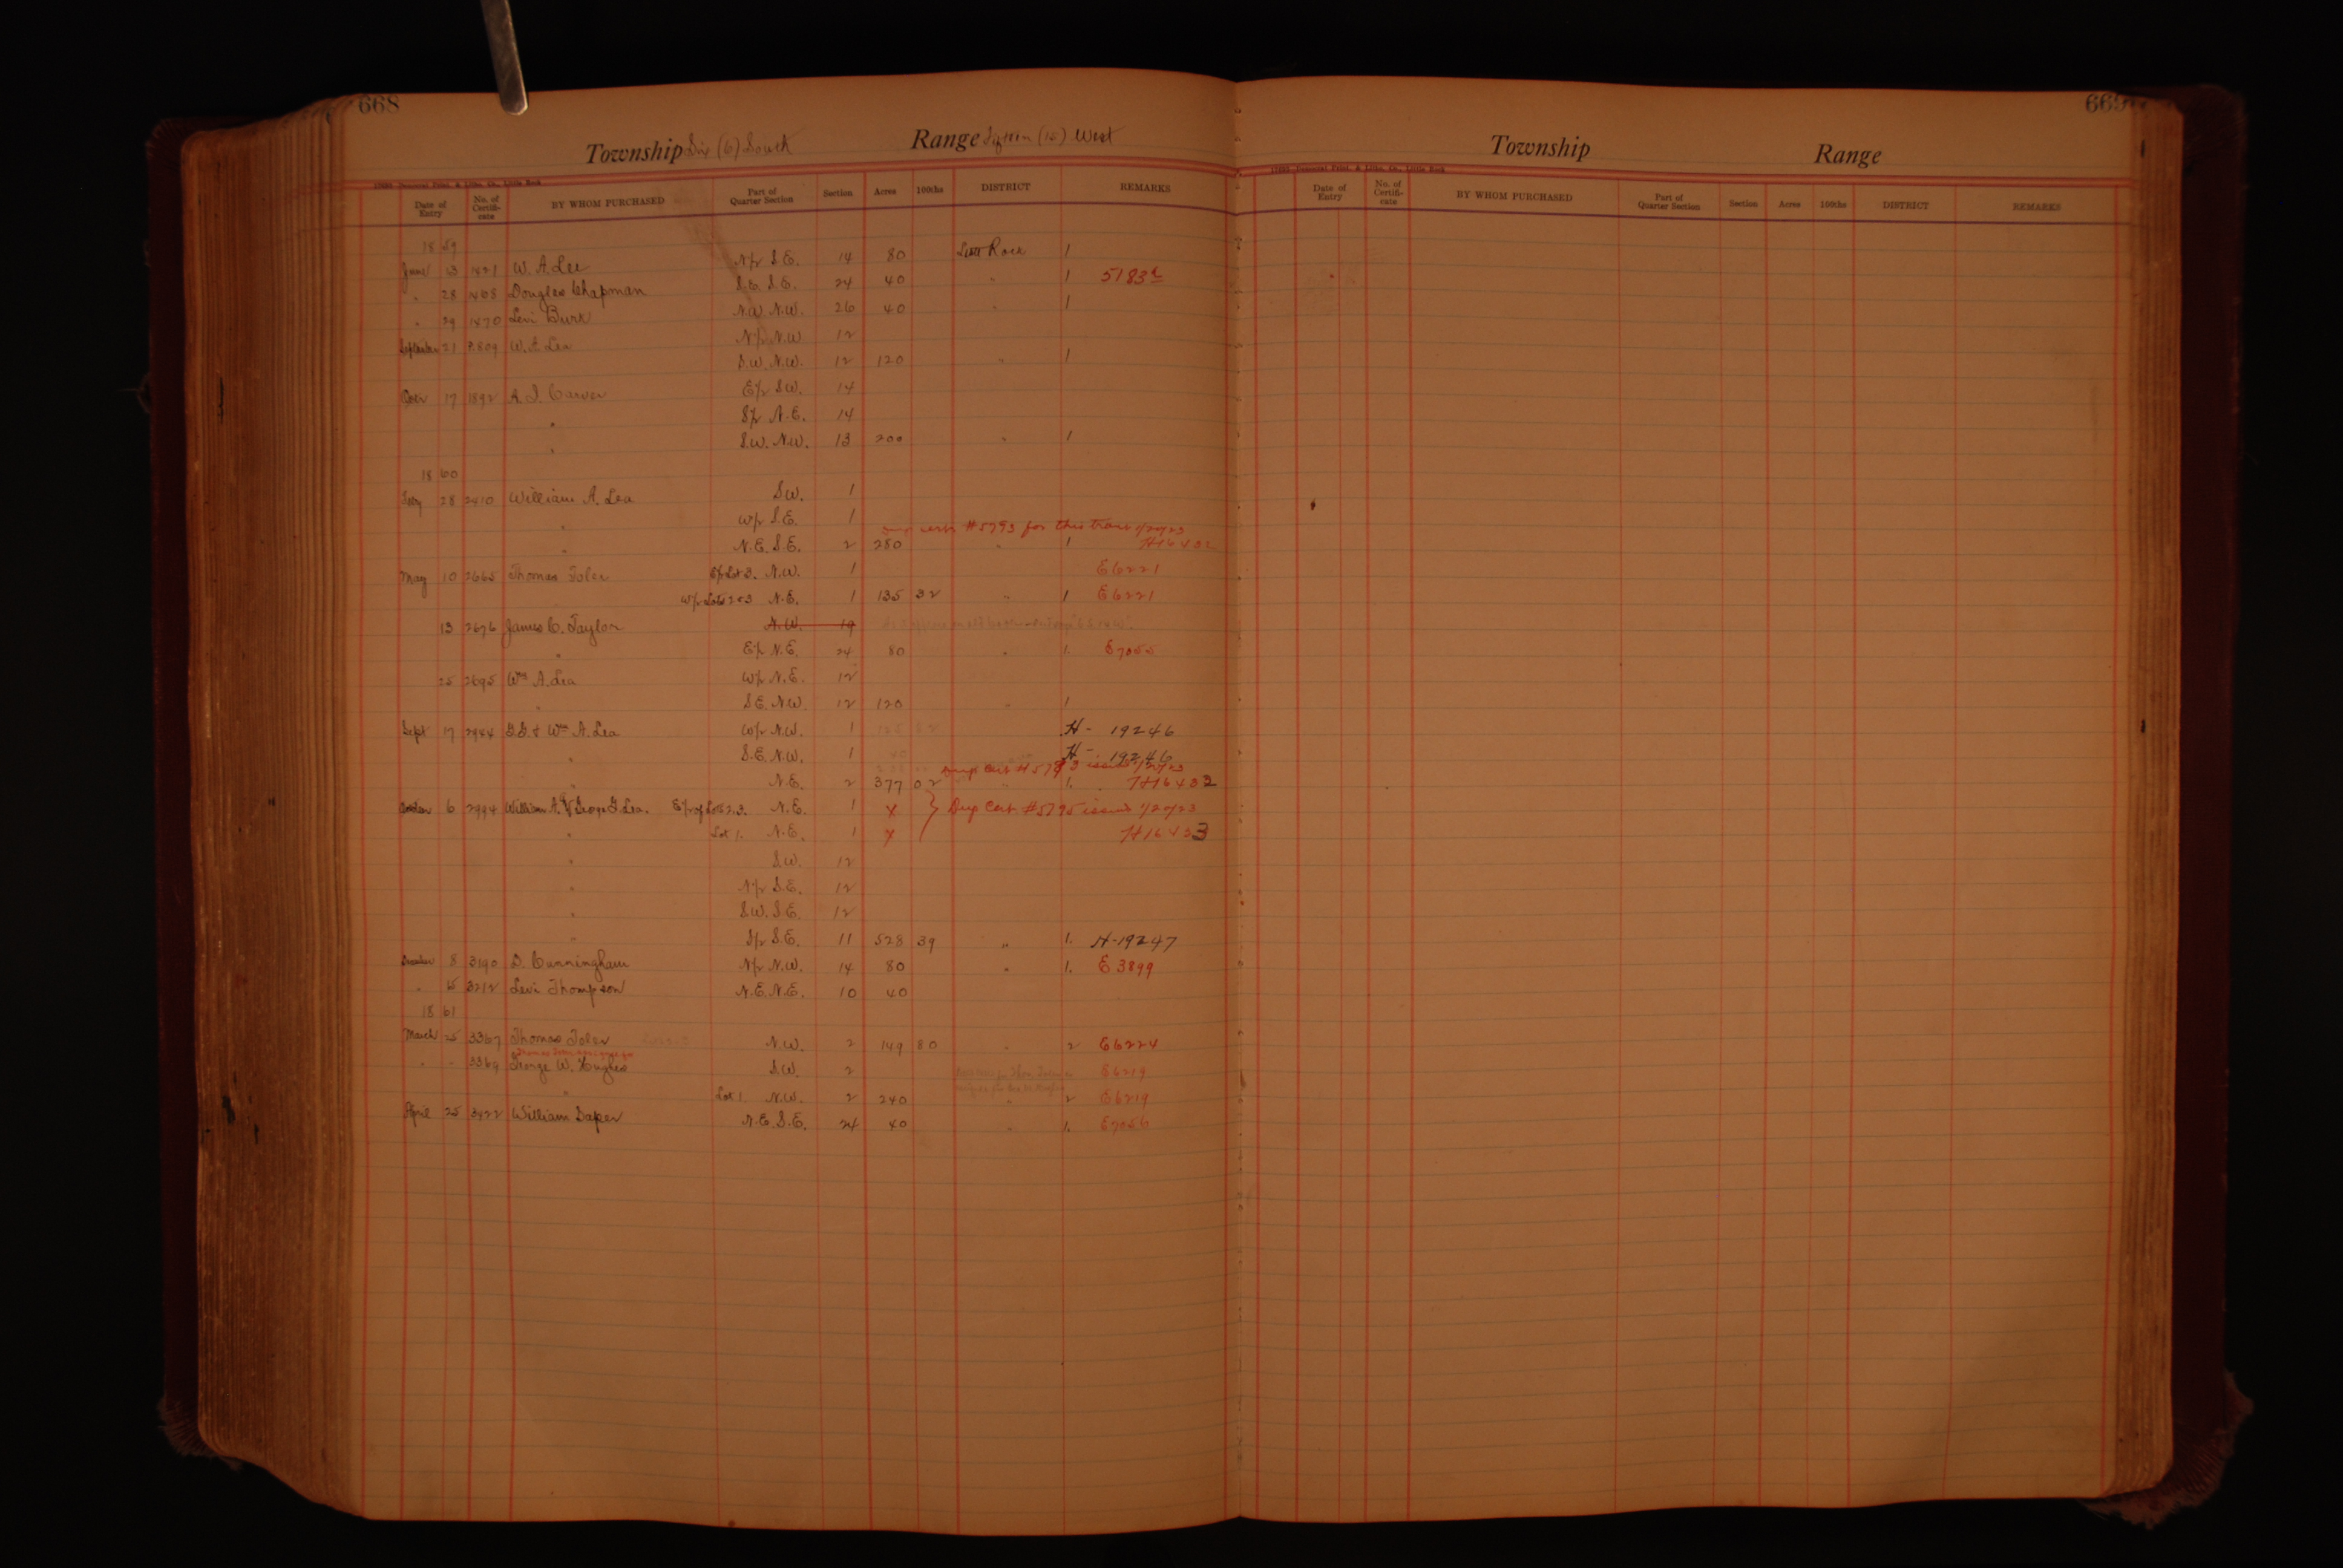 668
Township Six (6) South Range Fifteen (15) West
Date of Entry No. of Certifi-cate BY WHOM PURCHASED Part of Quarter Section Section Acres 100ths DISTRICT REMARKS
18 59
June 13 1421 W. A. Lee N/2 S.E. 14 80 Little Rock 1
" 28 1468 Douglas Chapman S.E. S.E. 24 40 " 1 5183
" 29 1470 Levi Burk N.W. N.W. 26 40 " 1
September 21 W. A. Lea N/2 N.W 12
S.W. N.W. 12 120 " 1
Octr 17 1892 A. J. Carver E/2 S.W. 14
" S/2 N.E. 14
" S.W. N.W. 13 200 " 1
18 60
28 2410 William A. Lea S.W. 1
" W/2 S.E. 1
cert #5793 for this tract 1/20/23
" N.E. S.E. 2 280 " 1 H16432
May 10 2665 Thomas Toler E/2 Lot 3. N.W. 1 E6221
W/2 Lots 2 & 3 N.E. 1 135 32 " 1 E6221
13 2676 James C. Taylor N.W. 19
" E/2 N.E. 24 80 " 1. E7055
25 2695 Wm A. Lea W/2 N.E. 12
" S.E. N.W. 12 120 " 1
Sept 17 2944 & Wm A. Lea W/2 N.W. 1 H- 19246
" S.E. N.W. 1 H- 19246
Dup Cert # 5793 issued 1/20/23
" N.E. 2 377 02 " 1. H16432
October 6 2994 William A. & George G. Lea. E/2 of Lots 2.3. N.E. 1 x } Dup Cert. #5795 issued 1/20/23
" Lot 1. N.E. 1 x H16433
" S.W. 12
" N/2 S.E. 12
" S.W. S.E. 12
" S/2 S.E. 11 528 39 " 1. H-19247
December 8 3190 D. Cunningham N/2 N.W. 14 80 " 1. E 3899
" 15 3212 Levi Thompson N.E. N.E. 10 40
18 61
March 25 3367 Thomas Toler N.W. 2 149 80 " 2 E6224
Thomas Toler
" - 3369 George W. Hughes S.W. 2 E6219
" Lot 1. N.W. 2 240 " 2 E6219
April 25 3422 William Draper N.E. S.E. 24 40 " 1. E7056
669
Township Range
Date of Entry No. of Certifi-cate BY WHOM PURCHASED Part of Quarter Section Section Acres 100ths DISTRICT REMARKS